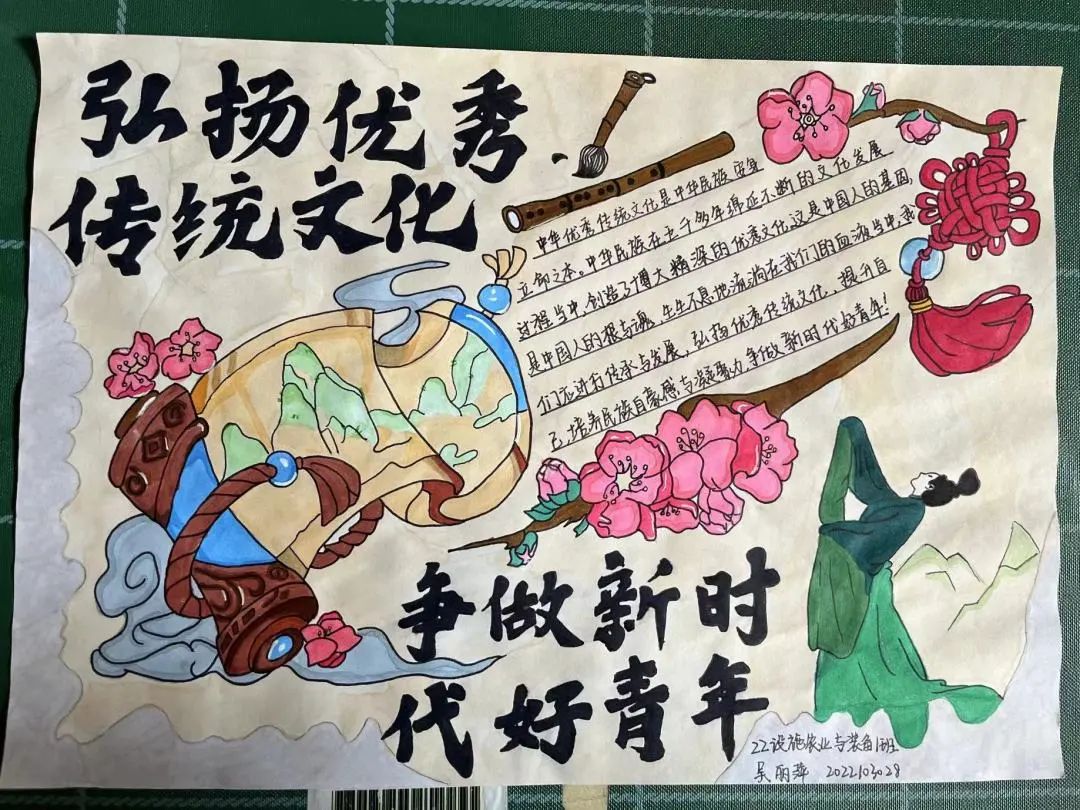 弘扬优秀
传统文化
中华优秀传统文化是中华民族安身
立命之本。中华民族在五千多年绵延不断的文化发展
过程当中,创造了博大精深的优秀文化,这是中国人的基因,
是中国人的根与魂,生生不息地流淌在我们的血液当中,我
们应进行传承与发展,弘扬优秀传统文化,提升自
己,培养民族自豪感与凝聚力,争做新时代好青年!
争做新时
代好青年
22设施农业与装备1班
吴丽萍 2022103028